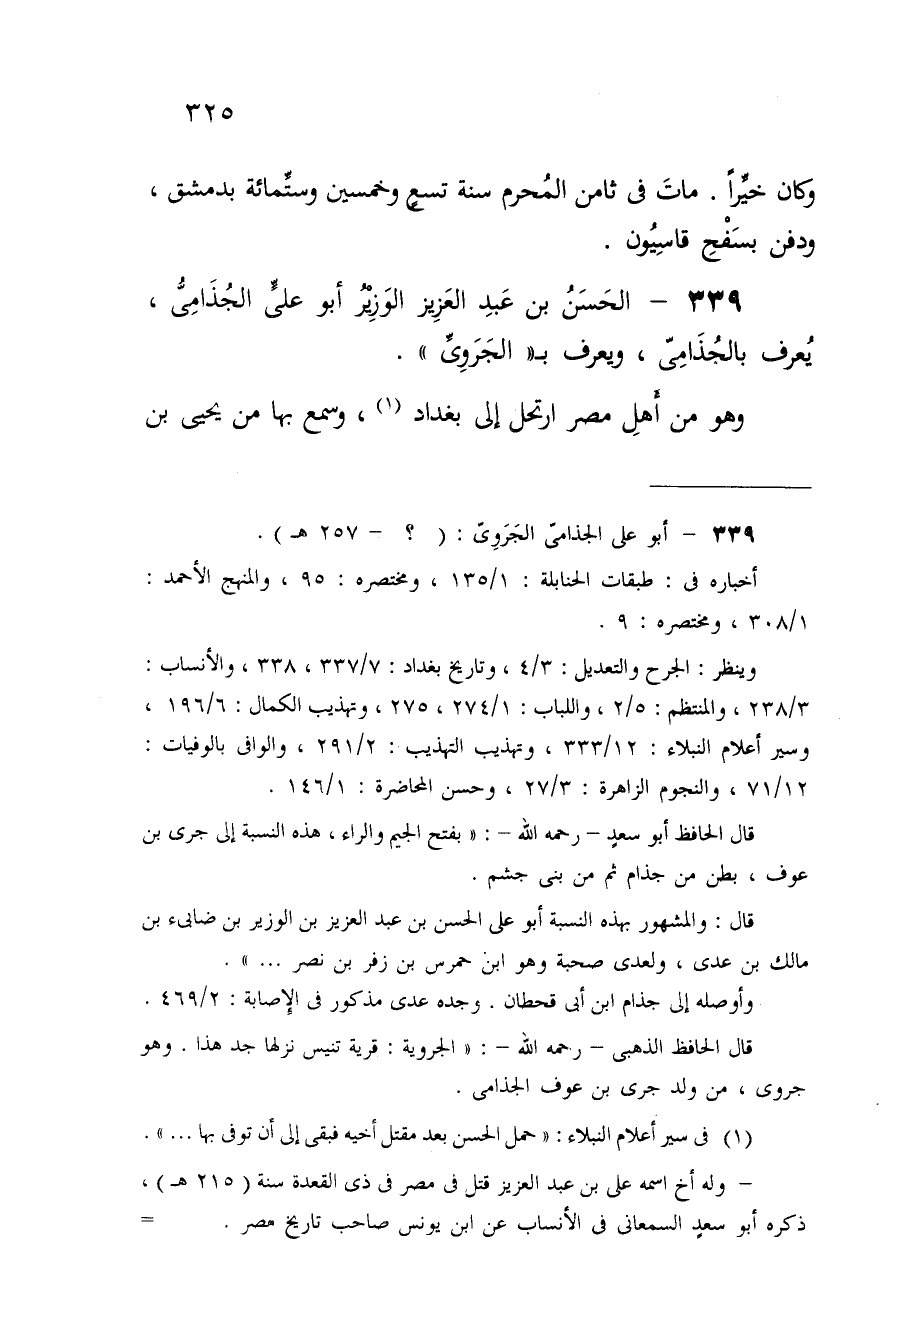 ٣٢٥
وكان خيِّراً . ماتَ فى ثامن المُحرم سنة تسعٍ وخمسين وستِّمائة بدمشق ،
ودفن بسَفْحِ قاسِيُون .
٣٣٩ – الحَسَنُ بن عَبدِ العَزِيز الوَزِيْرُ أبو علىٍّ الجُذَامِىُّ ،
يُعرف بالجُذَامِىّ ، ويعرف بـ« الجَرَوِىِّ » .
وهو من أَهلِ مصر ارتحل إلى بغداد (١) ، وسمع بها من يحيى بن
٣٣٩ – أبو على الجذامىّ الجَرَوِىّ : ( ؟ – ٢٥٧ هـ ) .
أخباره فى : طبقات الحنابلة : ١٣٥/١ ، ومختصره : ٩٥ ، والمنهج الأحمد :
٣٠٨/١ ، ومختصره : ٩ .
وينظر : الجرح والتعديل : ٤/٣ ، وتاريخ بغداد : ٣٣٧/٧ ، ٣٣٨ ، والأنساب :
٢٣٨/٣ ، والمنتظم : ٢/٥ ، واللباب : ٢٧٤/١ ، ٢٧٥ ، وتهذيب الكمال : ١٩٦/٦ ،
وسير أعلام النبلاء : ٣٣٣/١٢ ، وتهذيب التهذيب : ٢٩١/٢ ، والوافى بالوفيات :
٧١/١٢ ، والنجوم الزاهرة : ٢٧/٣ ، وحسن المحاضرة : ١٤٦/١ .
قال الحافظ أبو سعدٍ – رحمه الله – : « بفتح الجيم والراء ، هذه النسبة إلى جرى بن
عوف ، بطن من جذام ثم من بنى جشم .
قال : والمشهور بهذه النسبة أبو على الحسن بن عبد العزيز بن الوزير بن ضابىء بن
مالك بن عدى ، ولعدى صحبة وهو ابن حمرس بن زفر بن نصر ... » .
وأوصله إلى جذام ابن أبى قحطان . وجده عدى مذكور فى الإصابة : ٤٦٩/٢ .
قال الحافظ الذهبى – رحمه الله – : « الجروية : قرية تنيس نزلها جد هذا . وهو
جروى ، من ولد جرى بن عوف الجذامى .
(١) فى سير أعلام النبلاء : « حمل الحسن بعد مقتل أخيه فبقى إلى أن توفى بها ... » .
– وله أخ اسمه على بن عبد العزيز قتل فى مصر فى ذى القعدة سنة ( ٢١٥ هـ ) ،
ذكره أبو سعدٍ السمعانى فى الأنساب عن ابن يونس صاحب تاريخ مصر . =